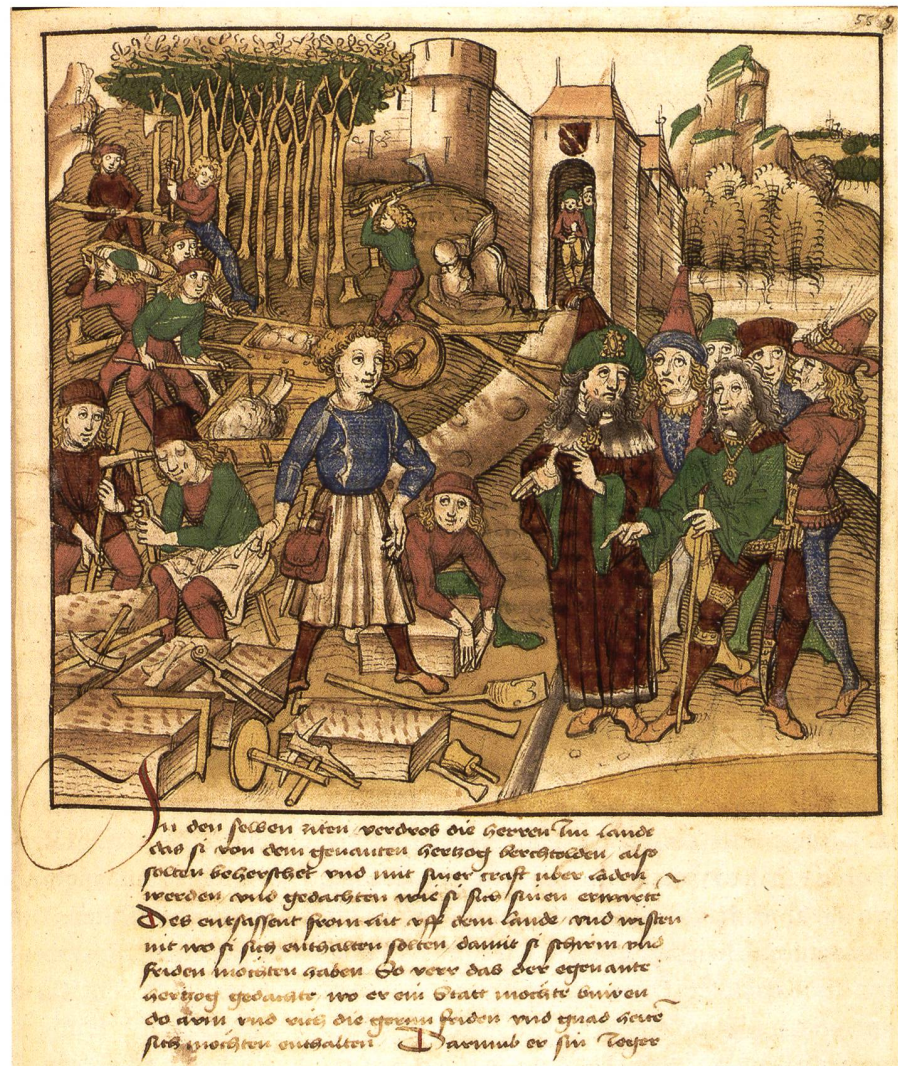 55 9
In den selben ziten verdros die herren im lande
das si von dem genanten hertzog berchtolden also
solten beherschet vnd mit siner craft vber laden
werden vnd gedachten wie si sich sinen erwerte
Des entsassent from lut vff dem lande vnd wisten
nit wo si sich enthalten solten damit si schirm vnd
friden mochten haben So verr das der egenante
hertzog gedachte wo er ein Statt mochte buwen
do arm vnd rich die gernn friden vnd gnad hette
sich mochten enthalten Darumb er sin Jeger